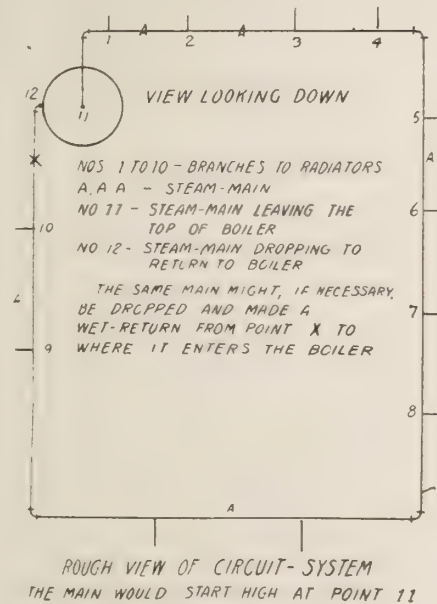 1 A 2 A 3 4
12
VIEW LOOKING DOWN
11
5
A
NOS 1 TO 10 - BRANCHES TO RADIATORS
A. A A - STEAM-MAIN
6
NO 11 - STEAM-MAIN LEAVING THE
10
TOP OF BOILER
NO 12 - STEAM-MAIN DROPPING TO
RETURN TO BOILER
THE SAME MAIN MIGHT, IF NECESSARY,
BE DROPPED AND MADE A
7
WET-RETURN FROM POINT X TO
9
WHERE IT ENTERS THE BOILER
8
A
ROUGH VIEW OF CIRCUIT-SYSTEM
THE MAIN WOULD START HIGH AT POINT 11